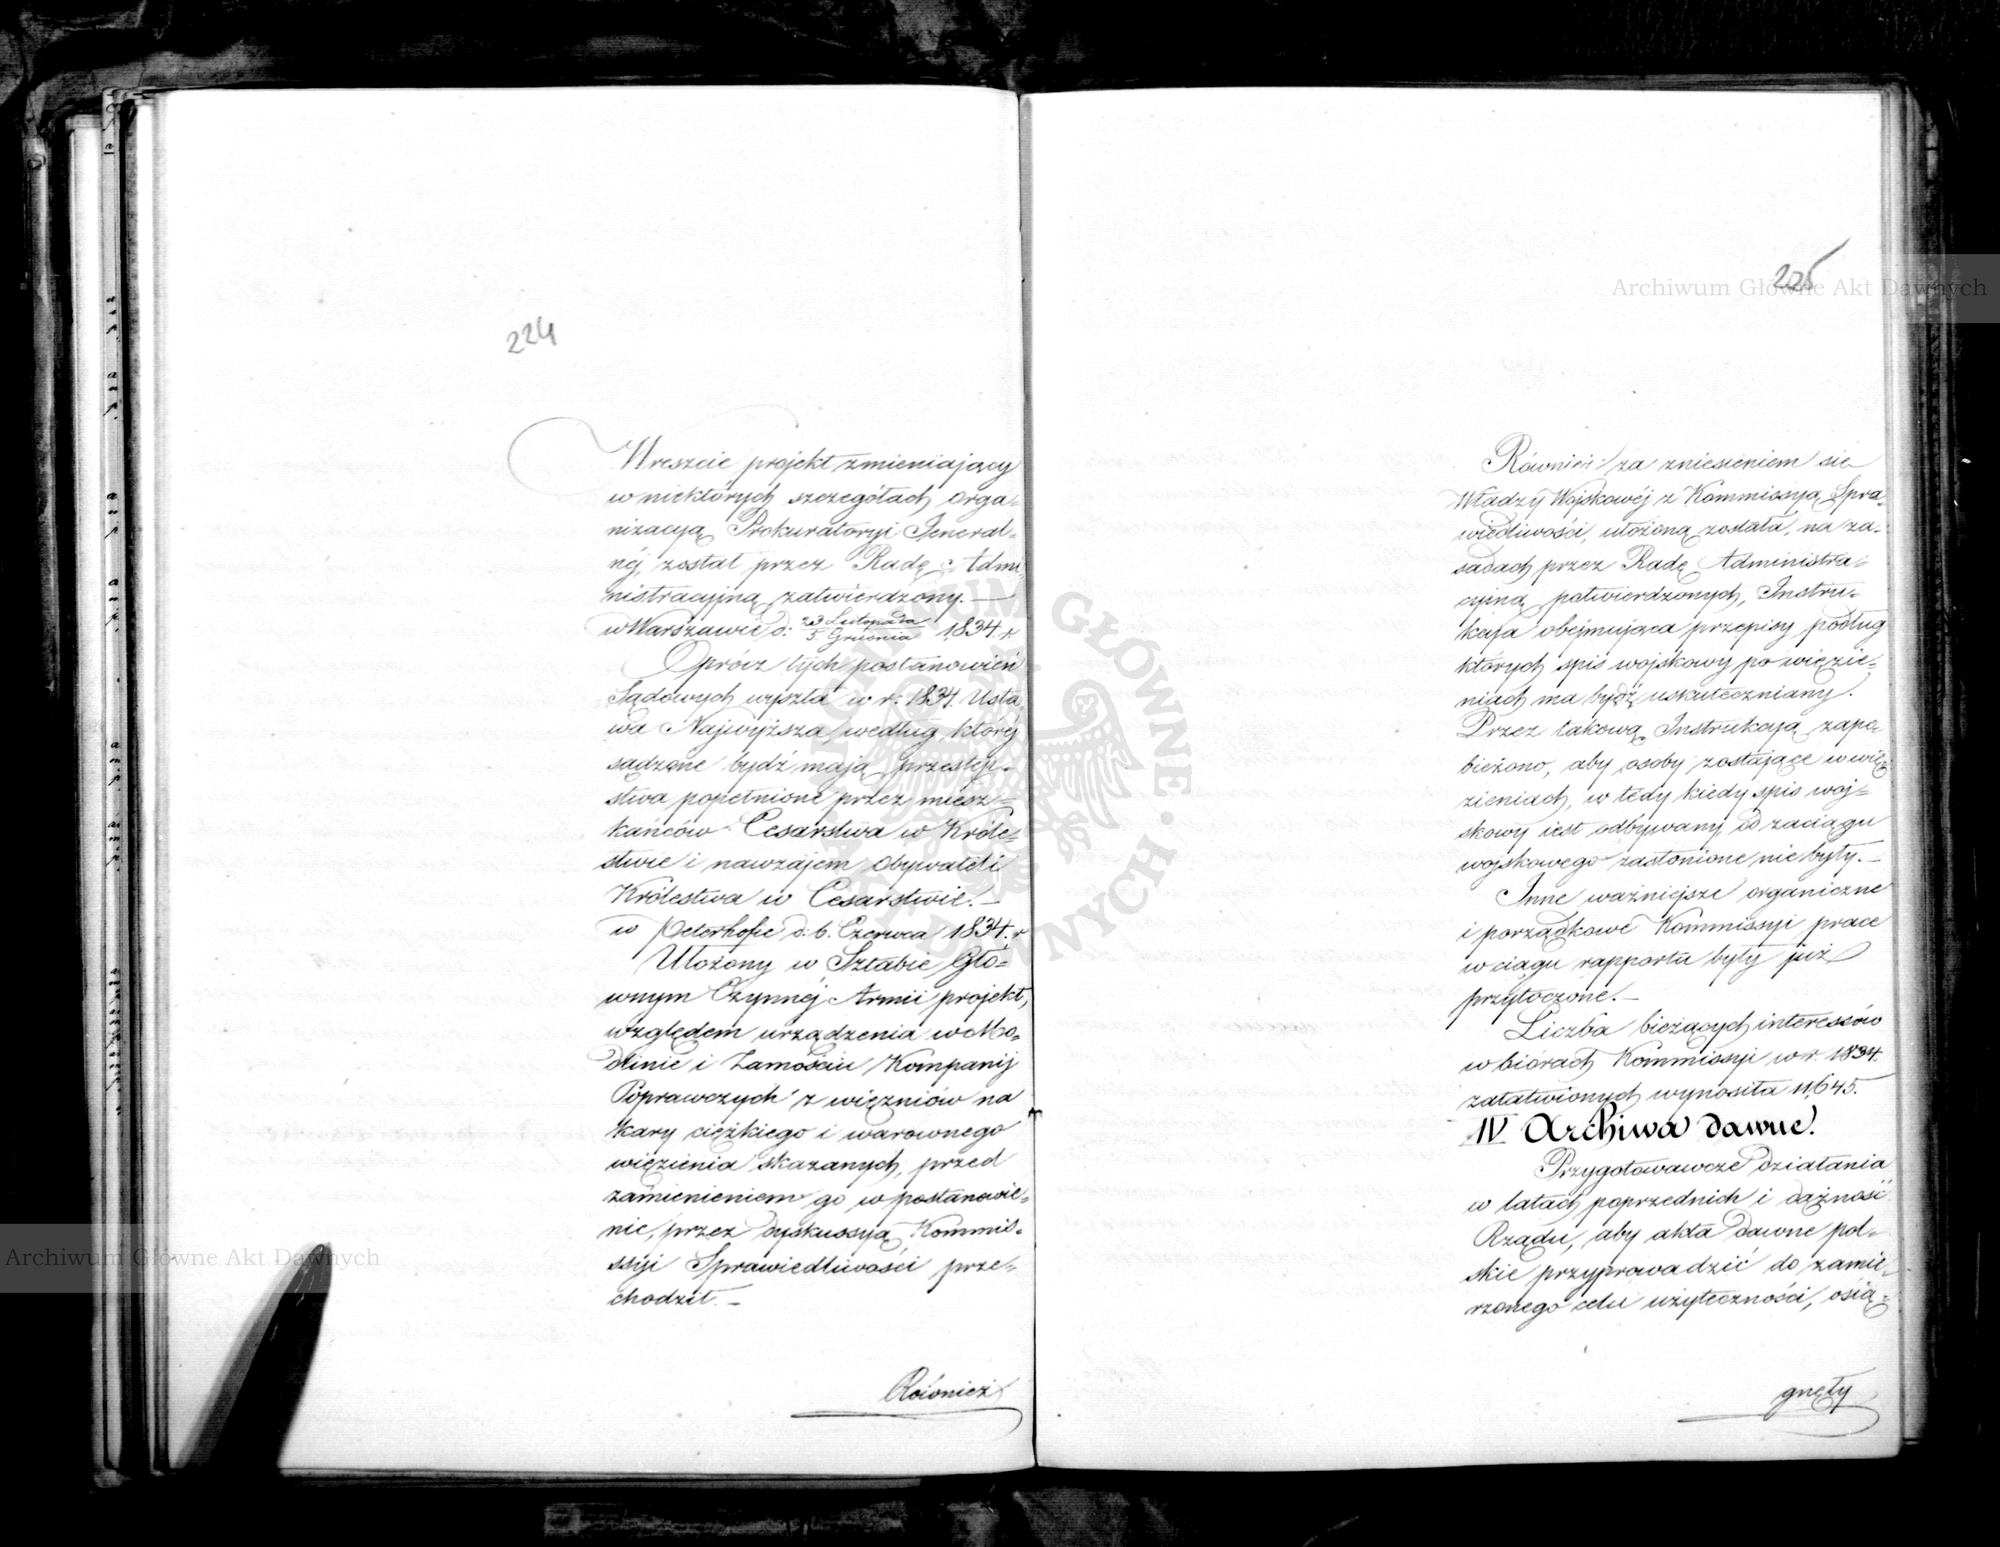 224
Wreszcie projekt zmieniający
w niektórych szczegółach orga-
nizacyą Prokuratoryi Jeneral-
néj, został przez Radę Admi-
nistracyjną zatwierdzony. —
w Warszawie d: 23 Listopada / 5 Grudnia 1834. r
Oprócz tych postanowień
Sądowych wyszła w r. 1834. Usta
wa Najwyższa, według któréj
sądzone bydź mają przestęp-
stwa popełnione przez miesz-
kańców Cesarstwa w Króle-
stwie i nawzajem obywateli
Królestwa w Cesarstwie. —
w Peterhofie d. 6. Czerwca 1834. r
Ułożony w Sztabie Głó-
wnym Czynnéj Armii projekt,
względem urządzenia w Mo-
dlinie i Zamościu Kompanij
Poprawczych z więzniów na
kary ciężkiego i warownego
więzienia skazanych, przed
zamienieniem go w postanowie-
nie, przez dyskussyą Kommis-
syi Sprawiedliwości prze-
chodził. —
Również
225
Również za zniesieniem się
Władzy Wojskowéj z Kommissyą Spra-
wiedliwości, ułożoną została, na za-
sadach przez Radę Administra-
cyjną potwierdzonych, Instru-
kcja obejmująca przepisy podług
których spis wojskowy po więzie-
niach ma bydź uskuteczniany.
Przez takową Instrukcją zapo
bieżono, aby osoby zostające w wię
zieniach, w tedy kiedy spis woj-
skowy iest odbywany od zaciągu
wojskowego zasłonione nie były. —
Inne ważniejsze organiczne
i porządkowe Kommissyi prace
w ciągu rapportu były już
przytoczone. —
Liczba bieżących interessów
w biórach Kommissyi w r. 1834.
załatwionych wynosiła 11,645.
IV Archiwa dawne.
Przygotowawcze działania
w latach poprzednich i dążność
Rządu, aby akta dawne pol-
skie przyprowadzić do zamie-
rzonego celu użyteczności, osią-
gnęły
Archiwum Główne Akt Dawnych
Archiwum Główne Akt Dawnych
ARCHIWUM GŁÓWNE AKT DAWNYCH